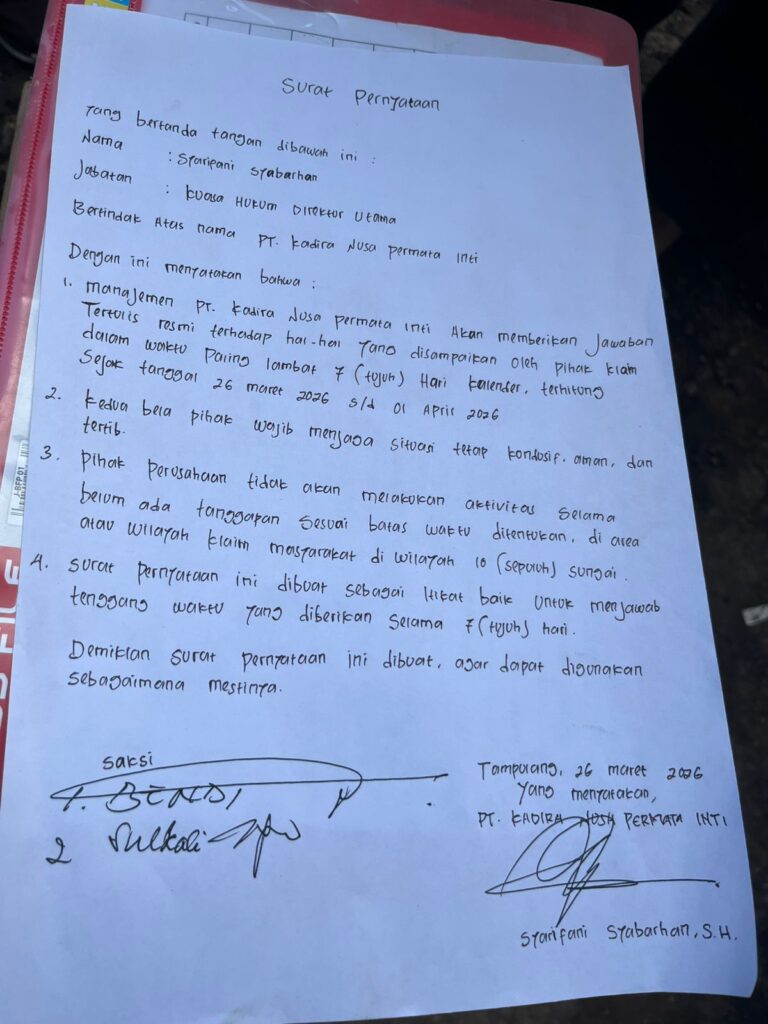 Surat Pernyataan
Yang bertanda tangan dibawah ini :
Nama : Syarifani Syabarhan
Jabatan : Kuasa Hukum Direktur Utama
Bertindak Atas nama PT. Kadira Nusa Permata Inti
Dengan ini menyatakan bahwa :
1. Manajemen PT. Kadira Nusa Permata Inti Akan memberikan Jawaban
Tertulis resmi terhadap hal-hal yang disampaikan oleh pihak klaim
dalam waktu Paling lambat 7 (tujuh) Hari kalender, terhitung
Sejak tanggal 26 maret 2026 s/d 01 April 2026
2. Kedua bela pihak wajib menjaga situasi tetap kondusif, aman, dan
tertib.
3. Pihak perusahaan tidak akan melakukan aktivitas selama
belum ada tanggapan sesuai batas waktu ditentukan, di area
atau wilayah klaim masyarakat di wilayah 10 (sepuluh) sungai.
4. Surat pernyataan ini dibuat sebagai itikat baik untuk menjawab
tenggang waktu yang diberikan selama 7 (tujuh) hari.
Demikian surat pernyataan ini dibuat, agar dapat digunakan
sebagaimana mestinya.
Saksi
1. BENDI
2 Sulkali
Tampulang, 26 maret 2026
Yang menyatakan,
PT. KADIRA NUSA PERMATA INTI
Syarifani Syabarhan, S.H.